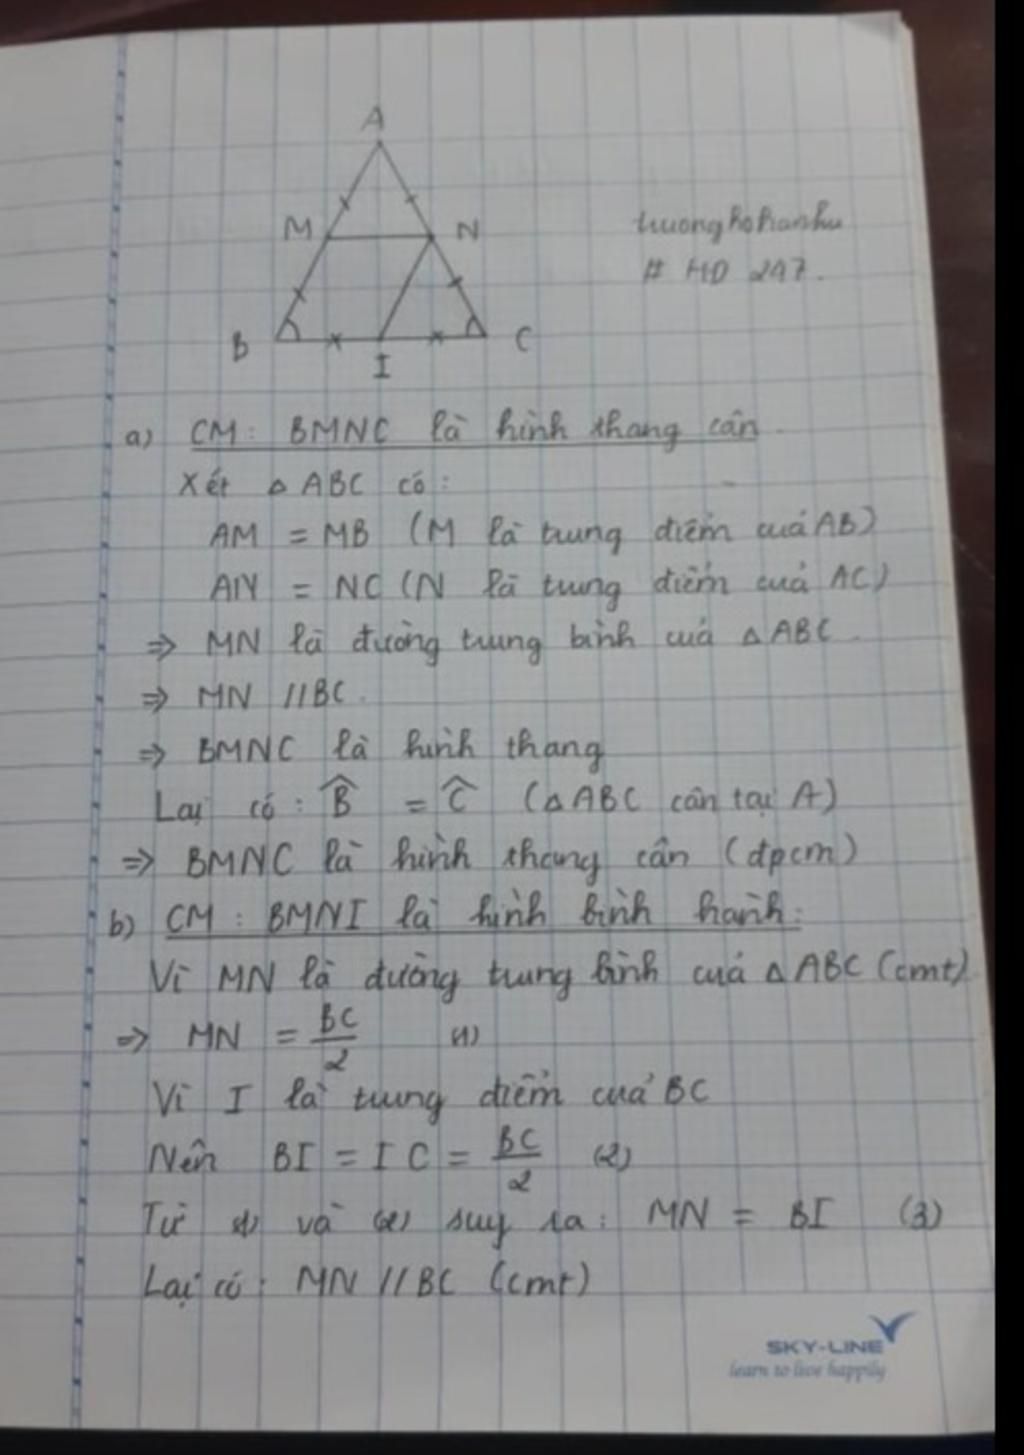 A
M
N
truonghohanhu
# HD 247.
B
C
I
a) CM: BMNC là hình thang cân.
Xét △ ABC có:
AM = MB (M là trung điểm cuả AB)
AN = NC (N là trung điểm cuả AC)
⇒ MN là đường trung bình cuả △ ABC.
⇒ MN // BC.
⇒ BMNC là hình thang
Lại có: B̂ = Ĉ (△ ABC cân tại A)
⇒ BMNC là hình thang cân (đpcm)
b) CM: BMNI là hình bình hành:
Vì MN là đường trung bình cuả △ ABC (cmt)
⇒ MN = BC/2 (1)
Vì I là trung điểm cuả BC
Nên BI = IC = BC/2 (2)
Từ (1) và (2) suy ra: MN = BI (3)
Lại có: MN // BC (cmt)
SKY-LINE
learn to live happily